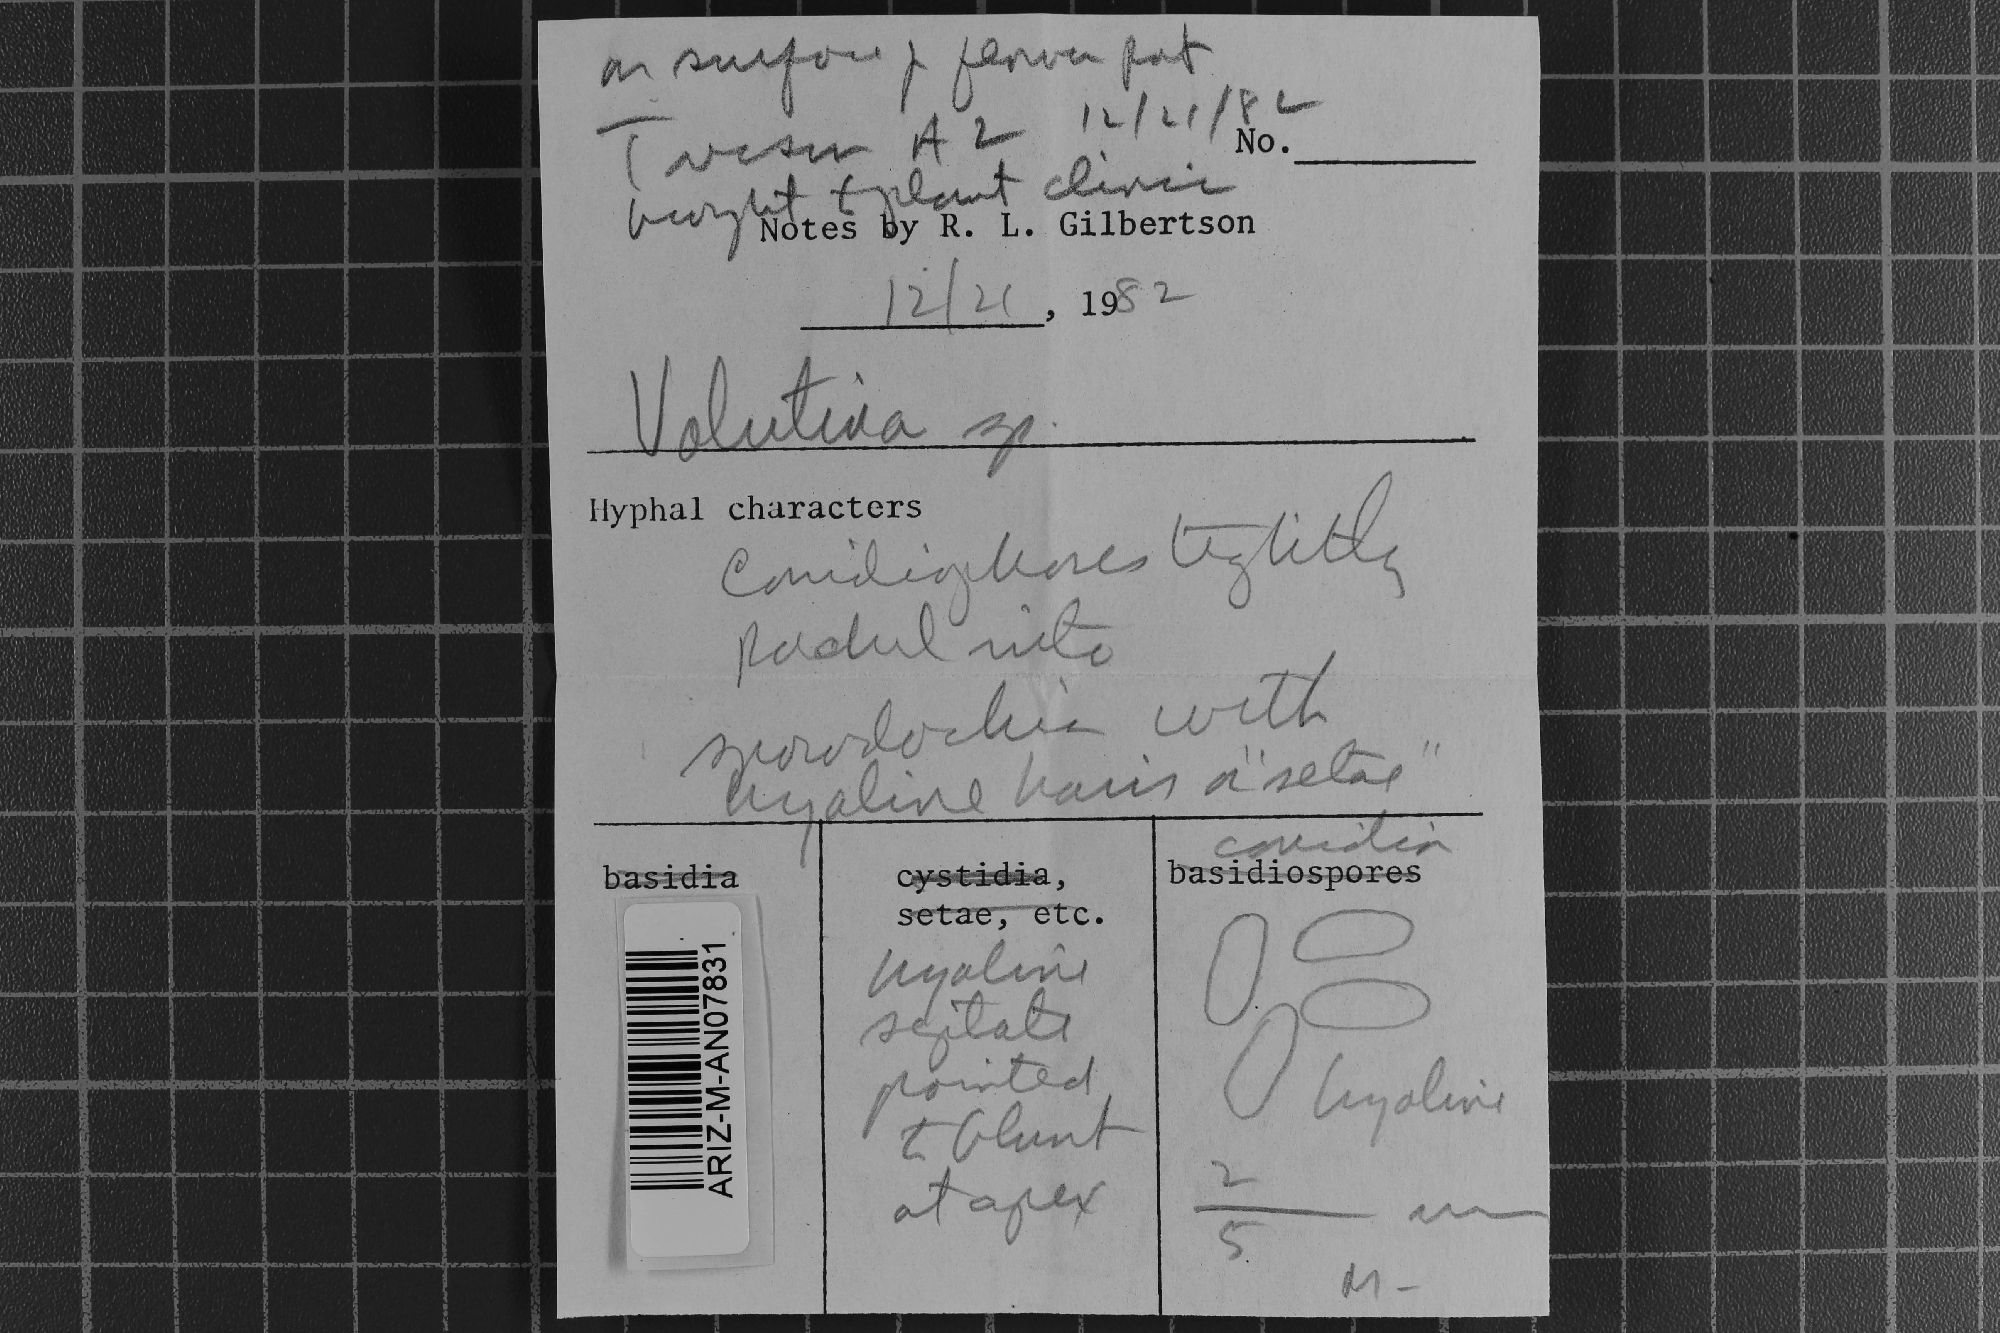 on surface of flower pot
Tucson AZ 12/21/82
No.
brought to plant clinic
Notes by R. L. Gilbertson
12/21, 1982
Volutina sp.
Hyphal characters
Conidiophores tightly
packed into
sporodochia with
hyaline hairs or "setae"
conidia
basidia
cystidia,
setae, etc.
basidiospores
hyaline
septate
pointed
to blunt
at apex
hyaline
2
5
M-
ARIZ-M-AN07831